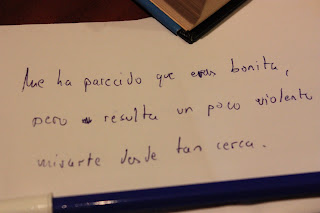 Me ha parecido que eras bonita,
pero resulta un poco violento
mirarte desde tan cerca.